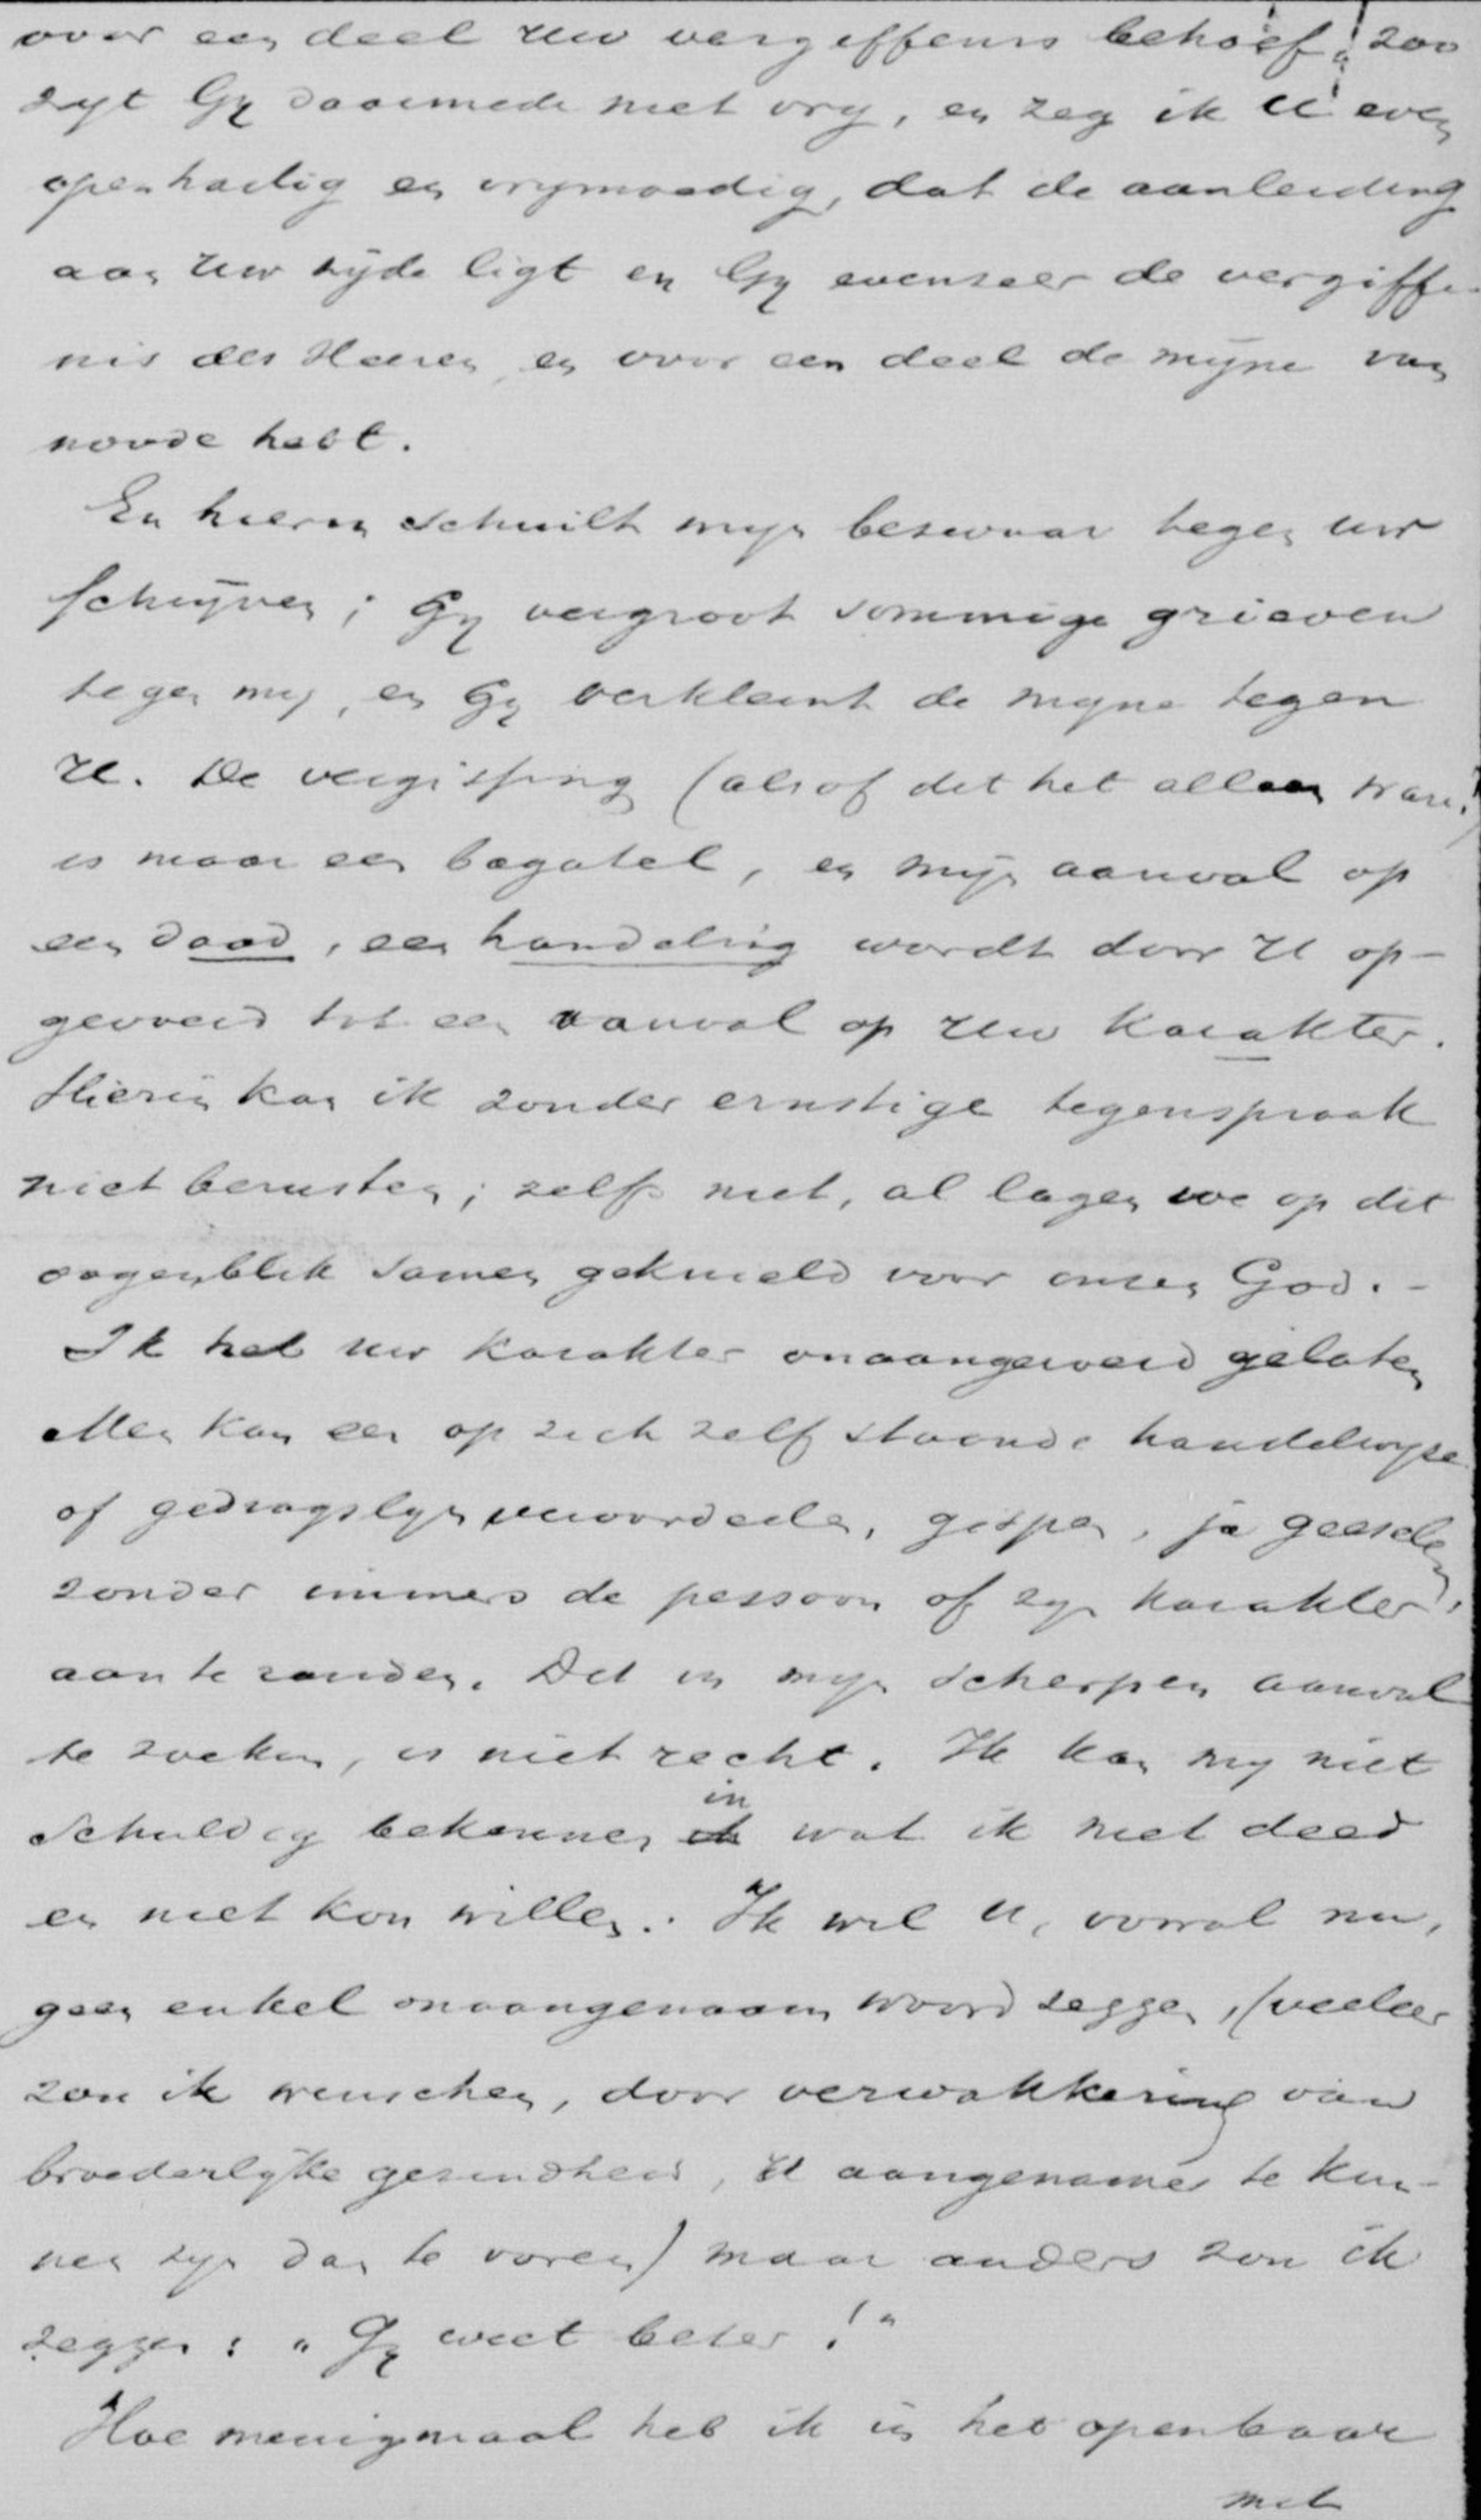 voor een deel Uw vergiffenis behoef, zoo
zyt Gy daarmede niet vry, en zeg ik U even
openhartig en vrymoedig, dat de aanleiding
aan Uw zyde ligt en Gy evenzeer de vergiffe-
nis des Heeren, en voor een deel de myne van
noode hebt.
En hierin schuilt myn bezwaar tegen uw
schryven; Gy vergroot sommige grieven
tegen my, en Gy verkleint de myne tegen
U. De vergissing (alsof dit het alleen ware!)
is maar een bagatel, en myn aanval op
een daad, een handeling wordt door U op-
gevoerd tot een aanval op Uw karakter.
Hierin kan ik zonder ernstige tegenspraak
niet berusten; zelfs niet, al lagen we op dit
oogenblik samen geknield voor onzen God. -
Ik heb uw karakter onaangeroerd gelaten
Men kan een op zich zelf staande handelwyze
of gedragslyn veroordeelen, gispen, ja geeselen,
zonder immers de persoon of zyn karakter
aan te randen. Dit in myn scherpen aanval
te zoeken, is niet recht. Ik kan my niet
schuldig bekennen in wat ik niet deed
en niet kon willen. Ik wil U, vooral nu,
geen enkel onaangenaam woord zeggen, (veeleer
zou ik wenschen, door verwakkering van
broederlyke gezindheid, U aangenamer te kun-
nen zyn dan te voren) maar anders zou ik
zeggen: „Gy weet beter!"
Hoe menigmaal heb ik in het openbaar
met